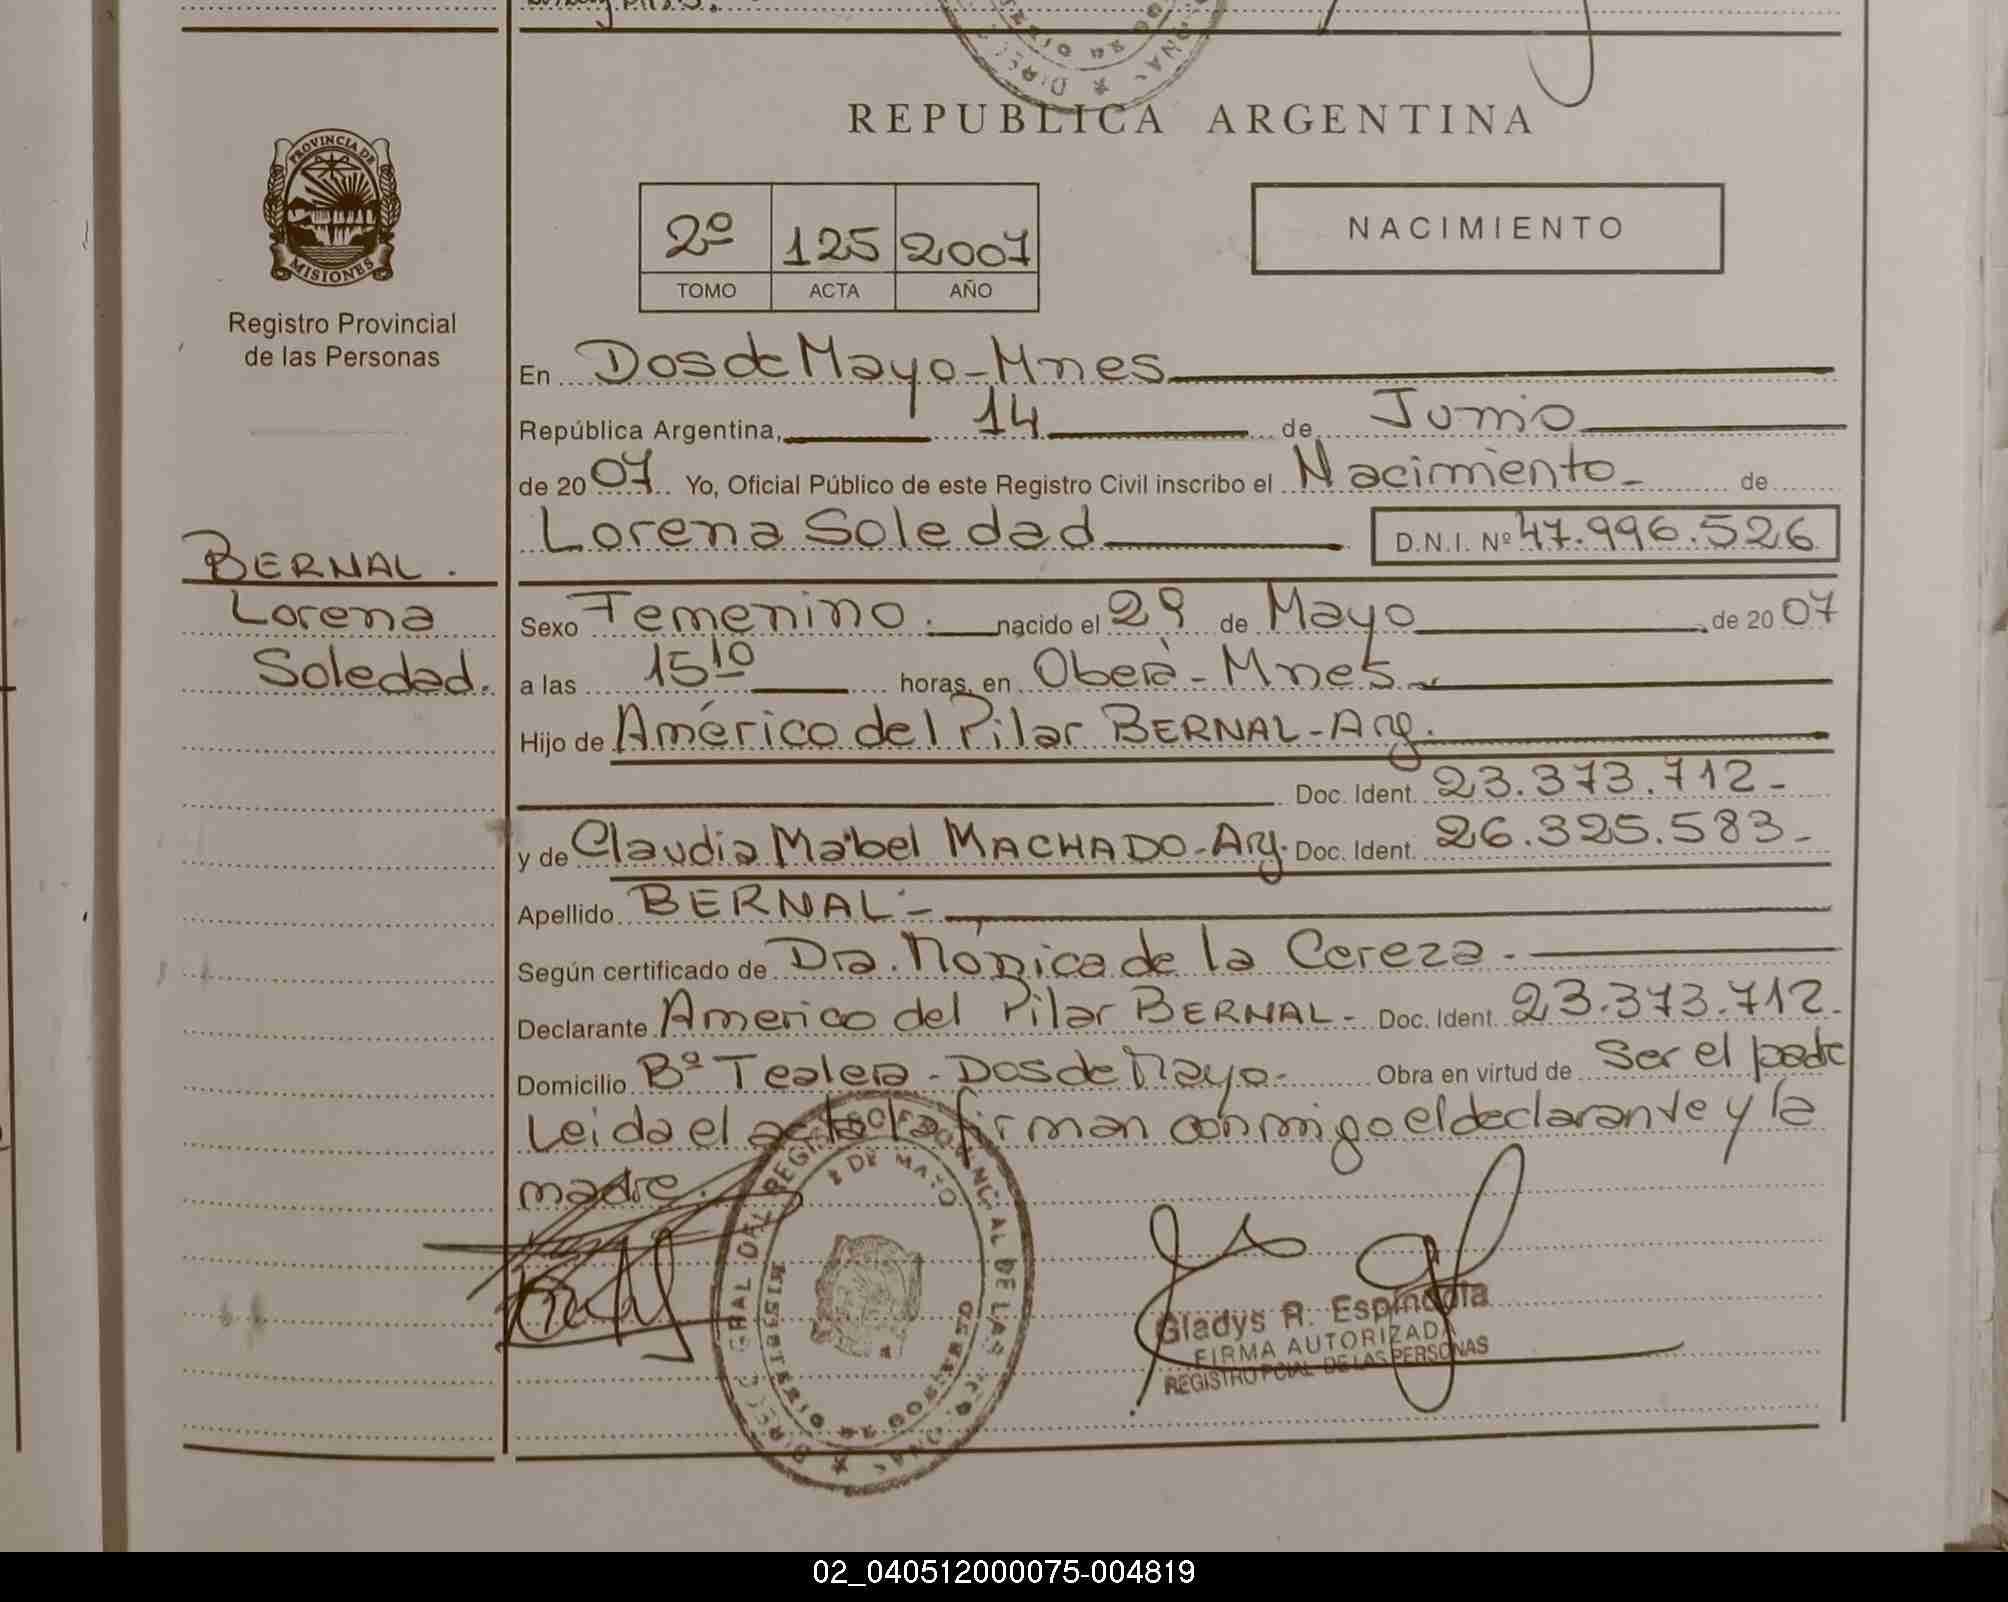 REPUBLICA ARGENTINA
PROVINCIA DE
MISIONES
Registro Provincial
de las Personas
2º 125 2007
TOMO ACTA AÑO
NACIMIENTO
En Dos de Mayo - Mnes
República Argentina, 14 de Junio
de 2007 Yo, Oficial Público de este Registro Civil inscribo el Nacimiento - de
Lorena Soledad D.N.I. Nº 47.996.526
BERNAL.
Lorena
Soledad.
Sexo Femenino. nacido el 29 de Mayo de 2007
a las 15 10 horas, en Oberá - Mnes
Hijo de Américo del Pilar BERNAL - Arg.
Doc. Ident. 23.373.712 -
y de Claudia Mabel MACHADO - Arg. Doc. Ident. 26.325.583 -
Apellido BERNAL -
Según certificado de Dra. Mónica de la Cereza -
Declarante Americo del Pilar BERNAL - Doc. Ident. 23.373.712 -
Domicilio Bº Tealera - Dos de Mayo - Obra en virtud de Ser el padre
Leida el acta la firman conmigo el declarante y la
madre.
2 DE MAYO
Gladys R. Espíndola
FIRMA AUTORIZADA
REGISTRO PCIAL. DE LAS PERSONAS
02_040512000075-004819